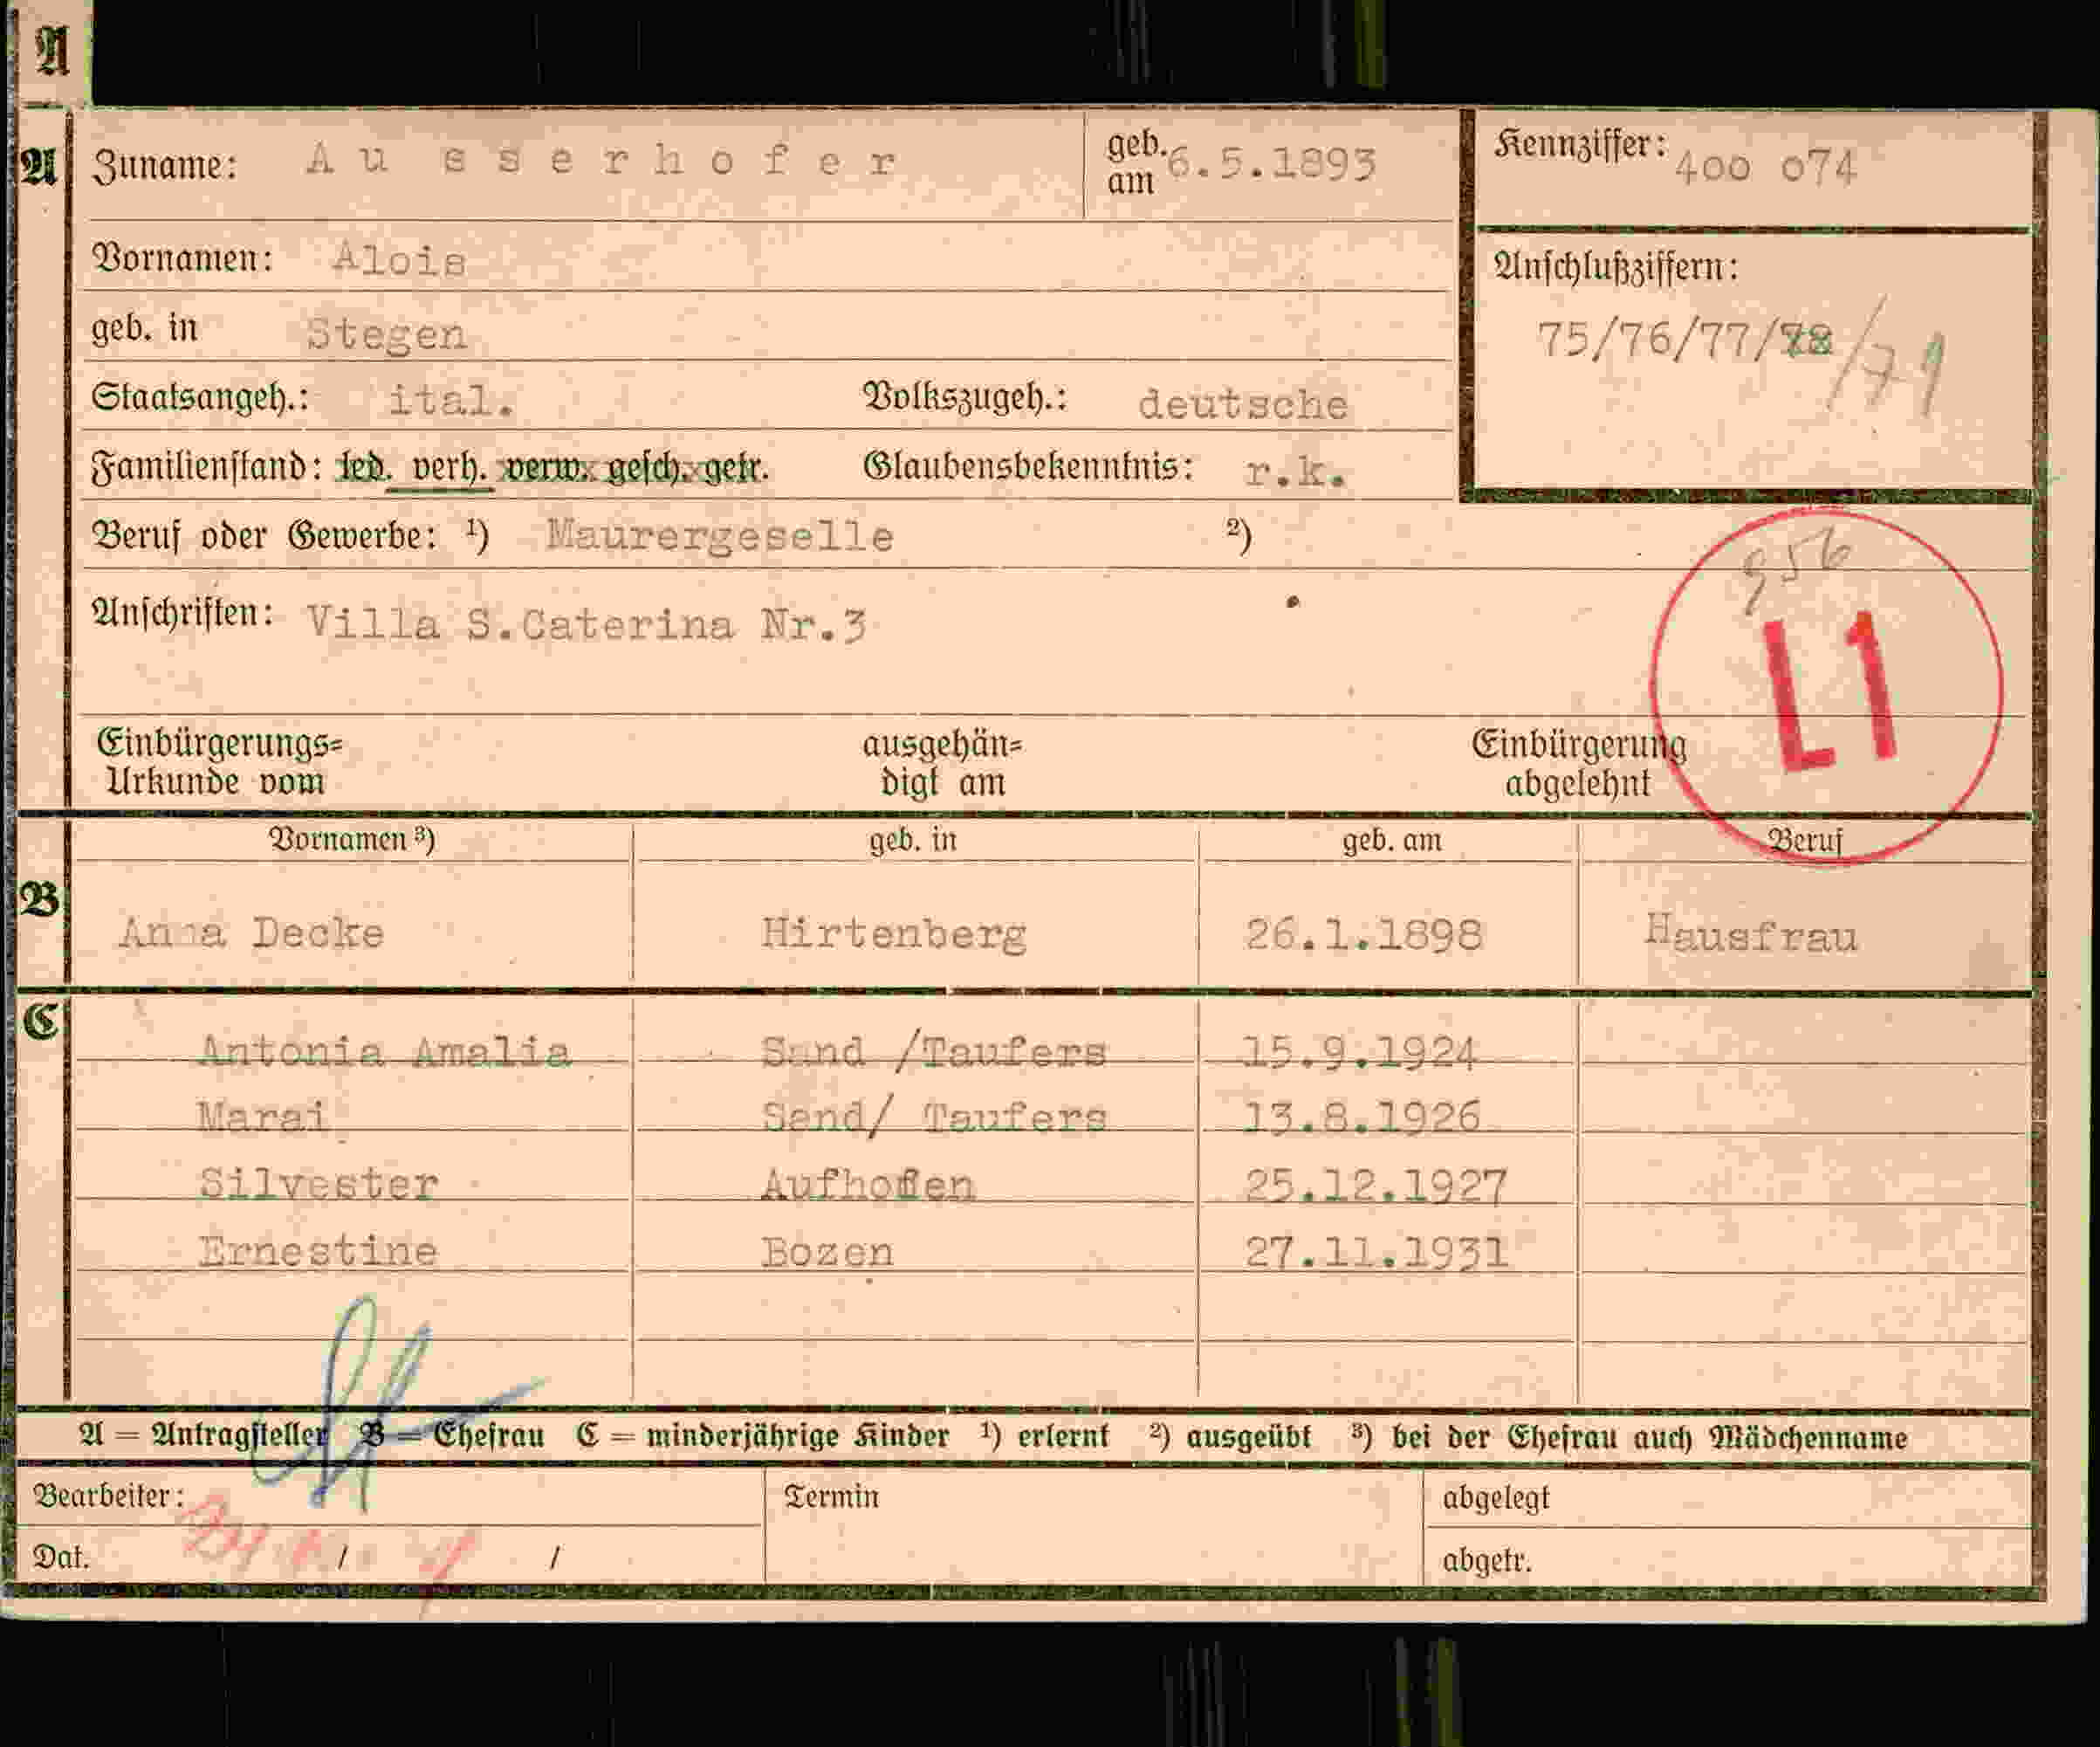 A
A Zuname: Ausserhofer geb. am 6.5.1893 Kennziffer: 400 074
Vornamen: Alois Anschlußziffern:
geb. in Stegen 75/76/77/78/79
Staatsangeh.: ital. Volkszugeh.: deutsche
Familienstand: led. verh. verw. gesch. getr. Glaubensbekenntnis: r.k.
Beruf oder Gewerbe: ¹) Maurergeselle ²)
956
Anschriften: Villa S.Caterina Nr.3
L1
Einbürgerungs= ausgehän= Einbürgerung
Urkunde vom digt am abgelehnt
Vornamen ³) geb. in geb. am Beruf
B Anna Decke Hirtenberg 26.1.1898 Hausfrau
C
Antonia Amalia Sand /Taufers 15.9.1924
Marai Sand/ Taufers 13.8.1926
Silvester Aufhofen 25.12.1927
Ernestine Bozen 27.11.1931
A = Antragsteller B = Ehefrau C = minderjährige Kinder ¹) erlernt ²) ausgeübt ³) bei der Ehefrau auch Mädchenname
Bearbeiter: Termin abgelegt
Dat. / / abgetr.